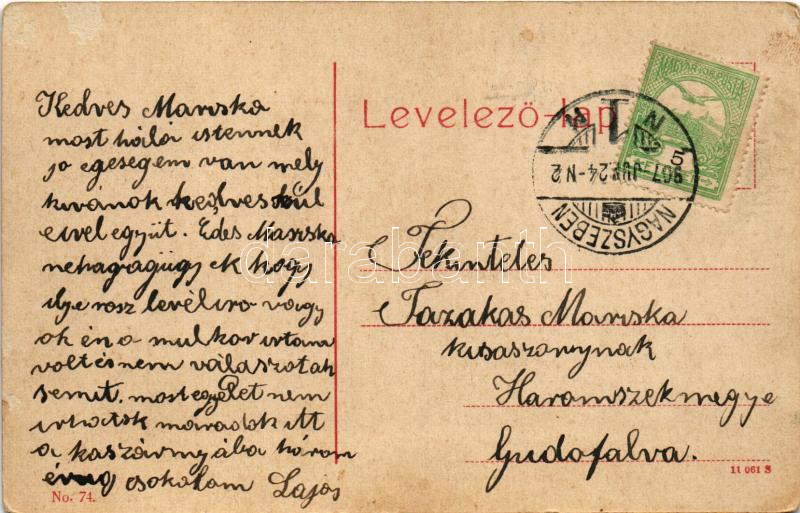 Kedves Mariska
most hála istennek
jo egesegem van mely
kivánok kedves szül
eivel együt. Édes Mariska
neharagügyék hogy
ilye rosz levéliro vagy
ok én a mulkor irtam
volt és nem válaszotak
semit. most egyebet nem
irhatok maradok itt
a kaszárnyába három
évig csokolom Lajos
No. 74.
Levelező-lap
MAGYAR KIR. POSTA
NAGYSZEBEN
907 JUN 24-N2
Tekinteles
Tazakas Mariska
kisaszonynak
Haromszekmegye
Gudofalva.
11 061 S
darabanth